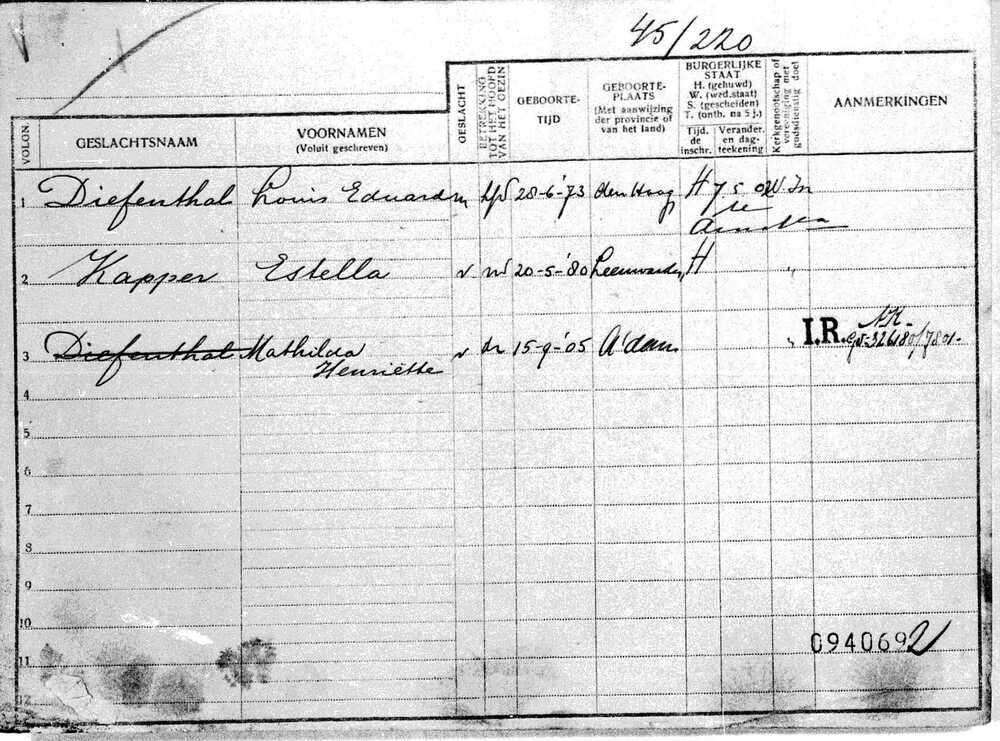 45/220
VOLGN.
GESLACHTSNAAM
VOORNAMEN
(Voluit geschreven)
GESLACHT
BETREKKING
TOT HET HOOFD
VAN HET GEZIN
GEBOORTE-
TIJD
GEBOORTE-
PLAATS
(Met aanwijzing
der provincie of
van het land)
BURGERLIJKE
STAAT
H. (gehuwd)
W. (wed.staat)
S. (gescheiden)
T. (ontb. na 5 j.)
Tijd.
de
inschr.
Verander.
en dag-
teekening
Kerkgenootschap of
vereeniging met
godsdienstig doel
AANMERKINGEN
1 Diefenthal Louis Eduard m hfd 28-6-'73 den Haag H 7 5 02
te
2 Kapper Estella v 20-5-'80 Leeuwarden H "
3 Diefenthal Mathilda v dr 15-9-'05 A'dam " I.R.
Henriëtte
4
5
6
7
8
9
10
0940692
11
12